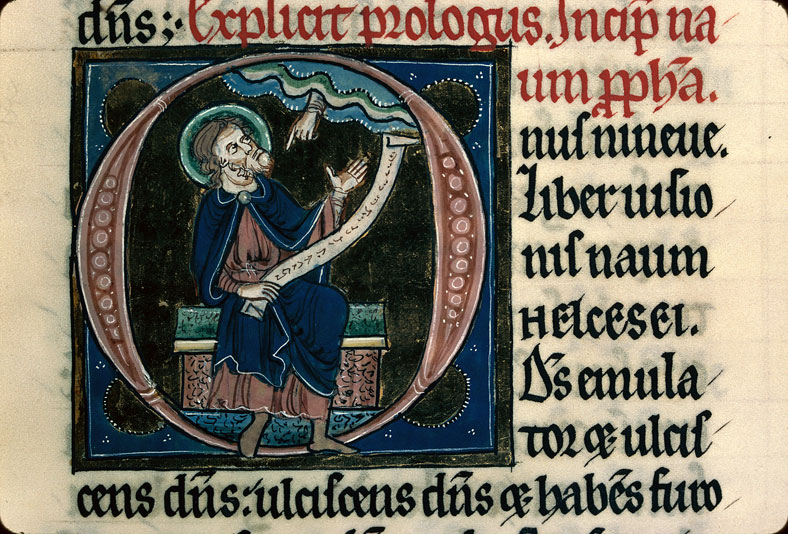 dn̄s;· Explicit prologus. Incip̄ na
um p̄ph̄a.
O
nus nineue.
Liber uisio
nis naum
HElCESEI.
D̄s emula
tor & ulcis
cens dn̄s: ulciscens dn̄s & habēs furo